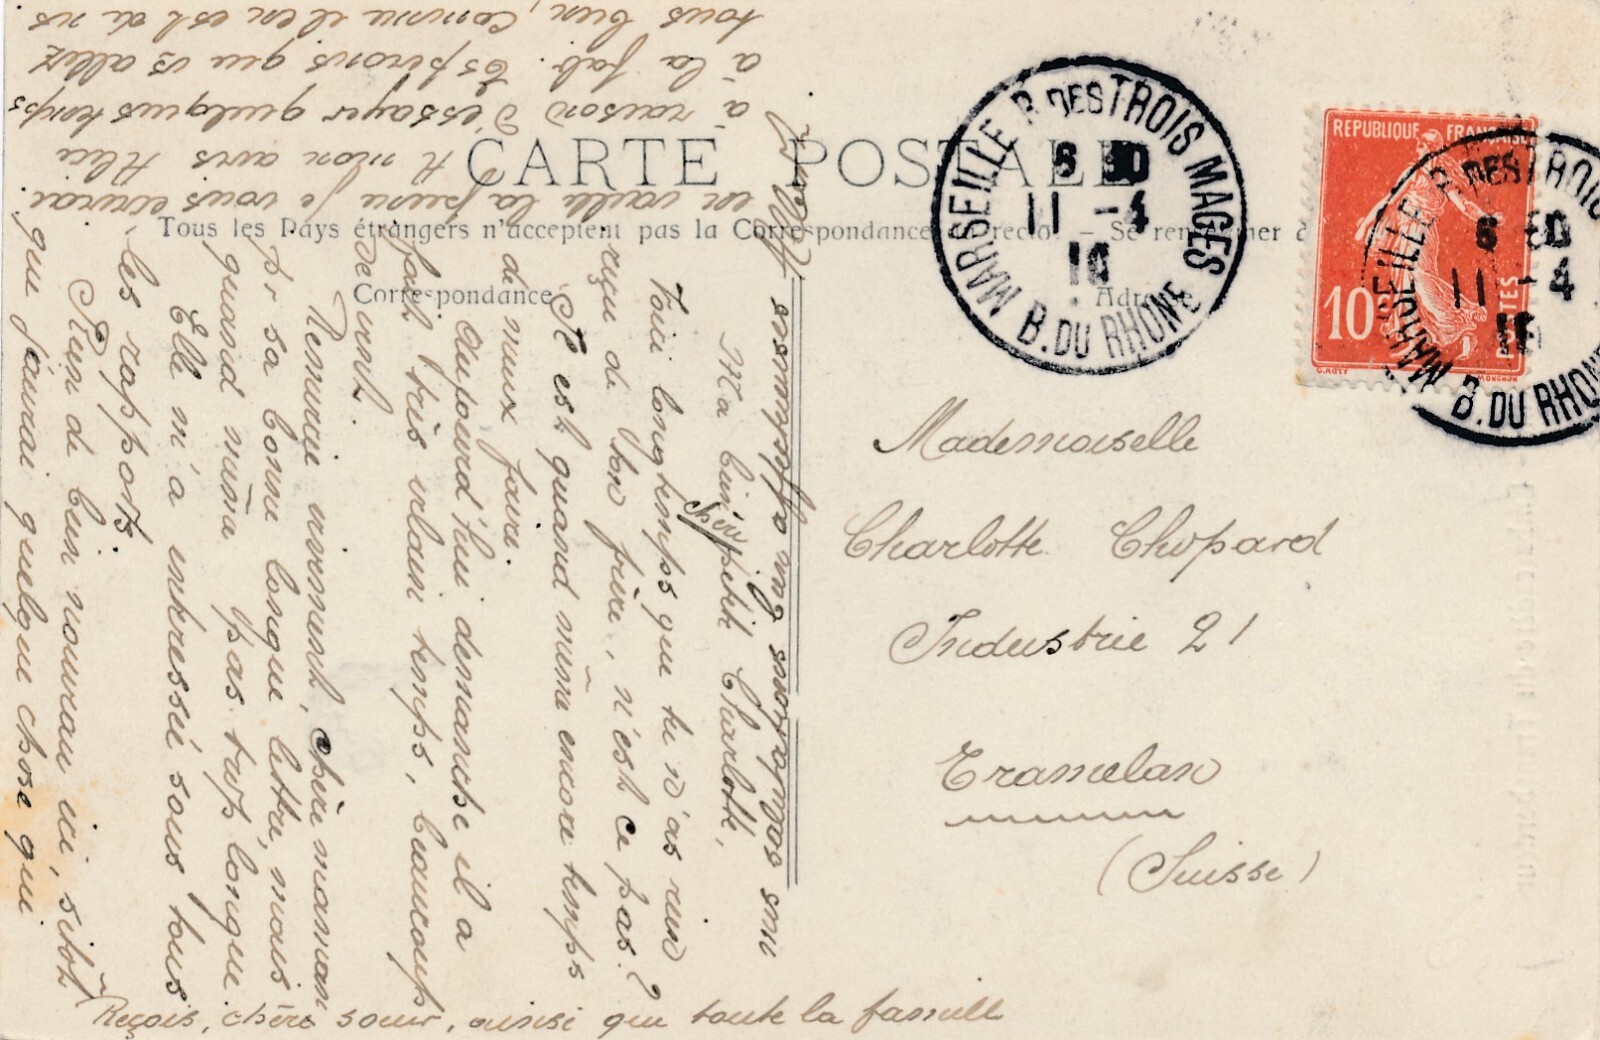 CARTE POSTALE
Tous les Pays étrangers n'acceptent pas la Correspondance au recto. – Se renseigner à
Correspondance
Adresse
MARSEILLE R. DES TROIS MAGES
6 30
11 - 4
B. DU RHONE
REPUBLIQUE FRANÇAISE
10
POSTES
MARSEILLE R. DES TROIS
6 30
11 - 4
B. DU RHONE
Mademoiselle
Charlotte Chopard
Industrie 21
Tramelan
(Suisse)
Ma bien chère petite Charlotte,
Voici longtemps que tu n'as rien
reçu de ton frère, n'est ce pas?
Il est quand même encore temps
de mieux faire.
Aujourd'hui dimanche il a
fait très vilain temps, beaucoup
de vent.
Remercie vivement, chère maman
pr sa bonne longue lettre, mais
quand même pas trop longue.
Elle m'a intéressé sous tous
les rapports.
Rien de bien nouveau ici, sitôt
que j'aurai quelque chose qui
en vaille la peine je vous écrirai
A mon avis Alice
à raison d'essayer quelques temps
à la fab. Espérons que vs allez
tous bien, comme il en est de ns
Reçois, chère soeur, ainsi que toute la famille
mes salutations bien affectueuses